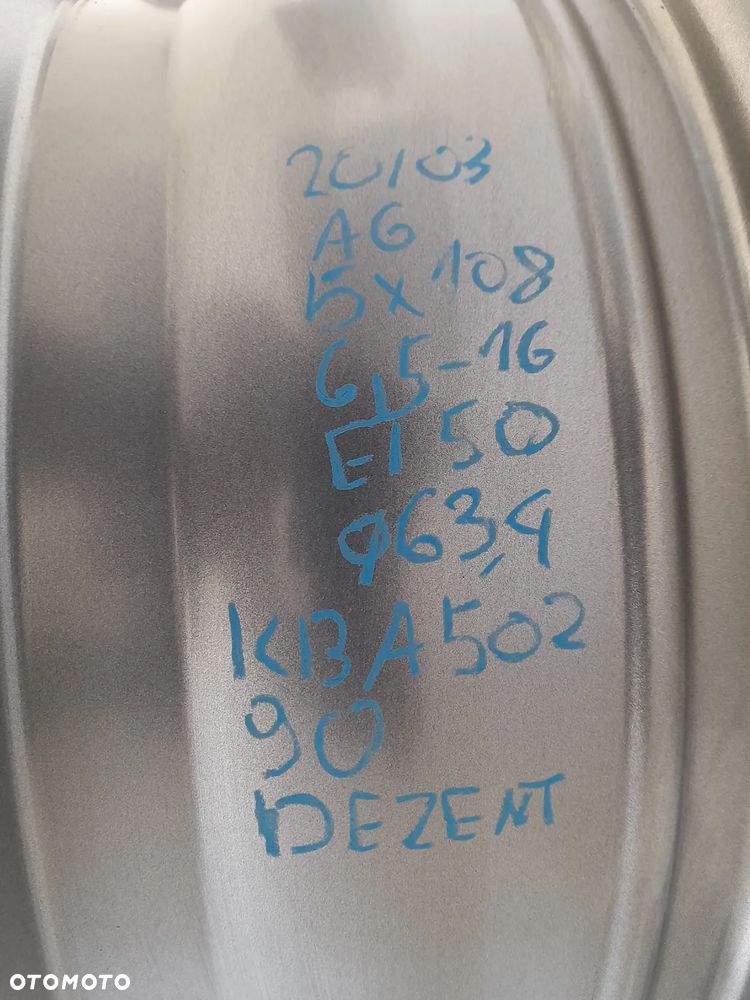 20103
A6
5x108
6,5-16
ET50
φ63,4
KBA502
90
DEZENT
OTOMOTO